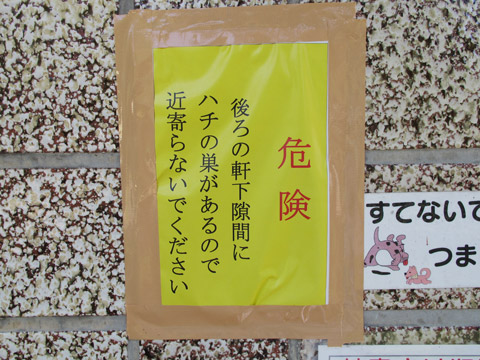 危険
後ろの軒下隙間に
ハチの巣があるので
近寄らないでください
すてないで
つま